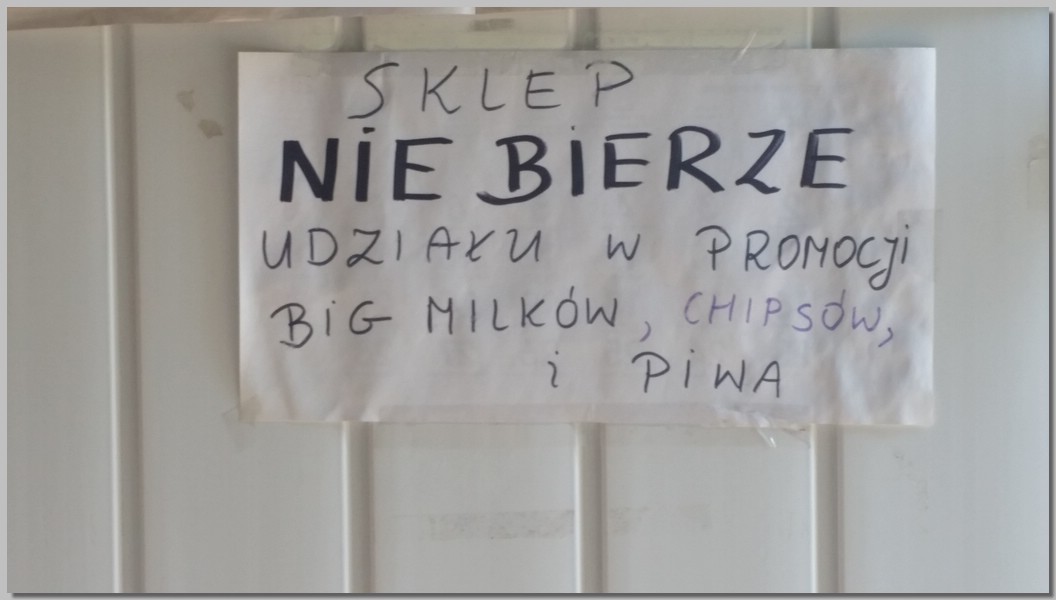 SKLEP
NIE BIERZE
UDZIAŁU W PROMOCJI
BIG MILKÓW, CHIPSÓW,
i PIWA